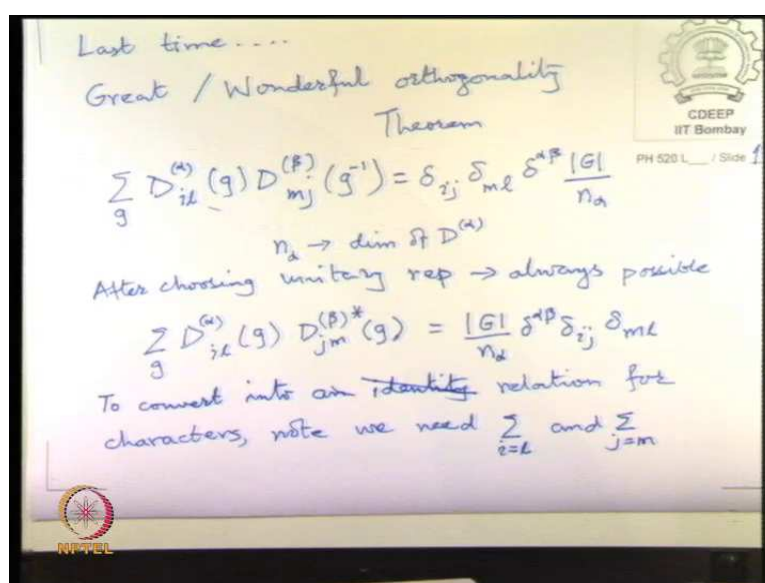 Last time....
Great / Wonderful orthogonality
Theorem
CDEEP
IIT Bombay
PH 520 L__ / Slide 1
∑_g D_{il}^{(α)} (g) D_{mj}^{(β)} (g^{-1}) = δ_{ij} δ_{ml} δ^{αβ} |G|/n_α
n_α → dim of D^{(α)}
After choosing unitary rep → always possible
∑_g D_{il}^{(α)} (g) D_{jm}^{(β)*} (g) = |G|/n_α δ^{αβ} δ_{ij} δ_{ml}
To convert into an identity relation for
characters, note we need ∑_{i=l} and ∑_{j=m}
NPTEL